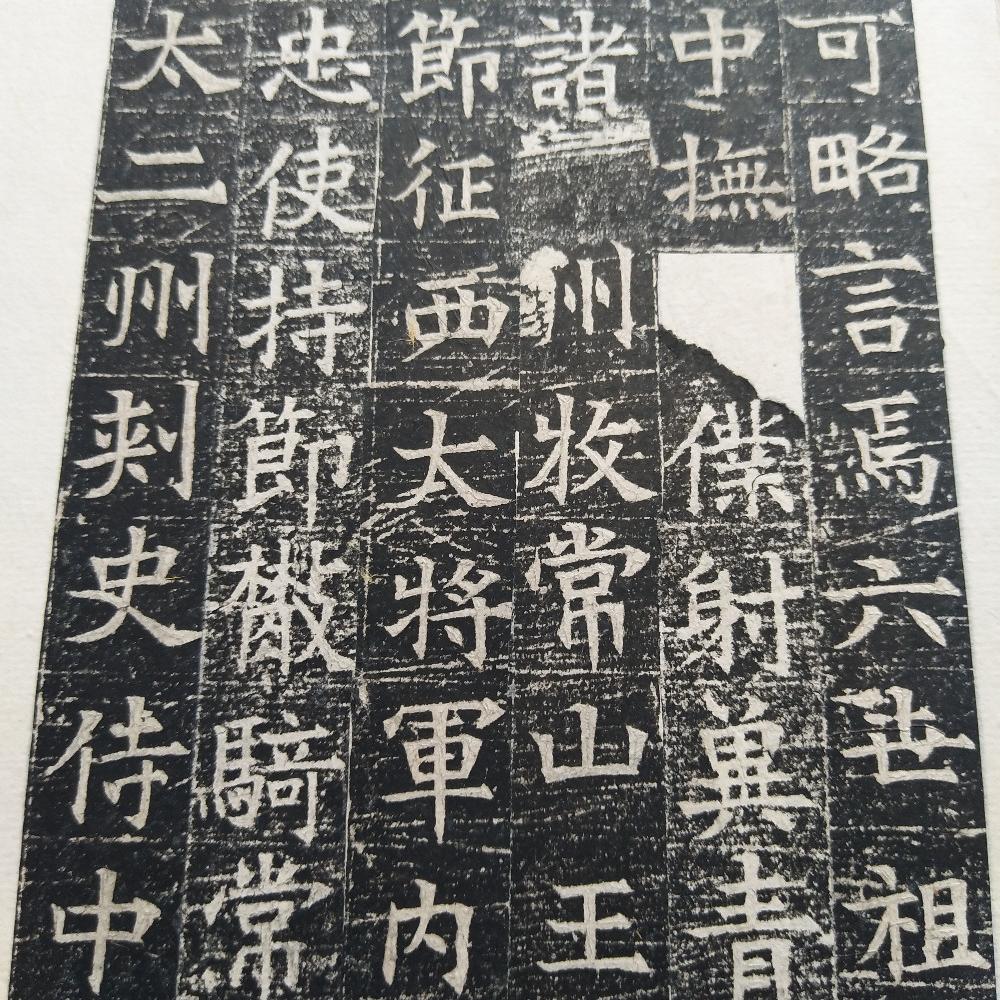 可略言焉六世祖
中撫僕射冀青
諸州牧常山王
節征西大將軍内
忠使持節散騎常
太二州刾史侍中